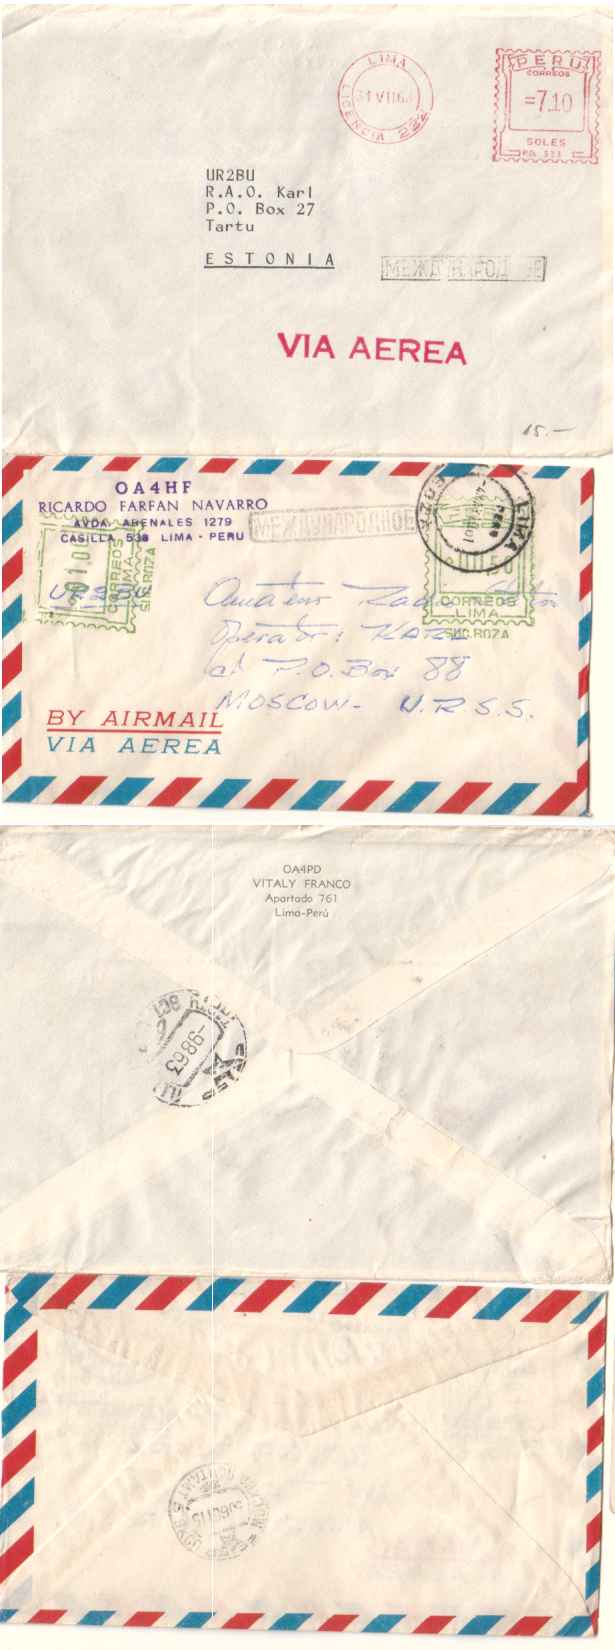 LIMA
31 VII 63
LICENCIA 222
PERU
CORREOS
=7.10
SOLES
P.B. 333
UR2BU
R.A.O. Karl
P.O. Box 27
Tartu
ESTONIA
МЕЖДУНАРОДНОЕ
VIA AEREA
15.-
OA4HF
RICARDO FARFAN NAVARRO
AVDA. ARENALES 1279
CASILLA 538 LIMA - PERU
МЕЖДУНАРОДНОЕ
LIMA
PERU
CORREOS
LIMA
SUC. ROZA
CORREOS
LIMA
SUC. ROZA
UR2BU
Amateur Radio Station
Operator: KARL
a/ P.O. Box 88
MOSCOW- U.R.S.S.
BY AIRMAIL
VIA AEREA
OA4PD
VITALY FRANCO
Apartado 761
Lima-Perú
-9 8 63